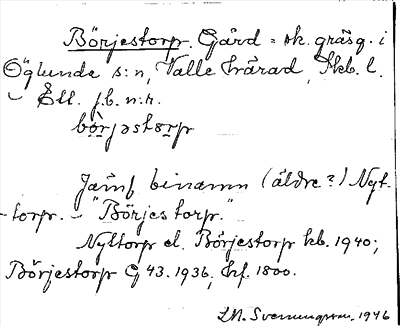 Börjestorp. Gård = sk. gräsg. i
Öglunda s:n, Valle härad, Skb. l.
– Ell. f.b. n:r.
bòrjəstɷrp
Jämf binamn (äldre?) Nyt-
torp. – "Börjes torp."
Nyttorp el. Börjestorp kb. 1940;
Börjestorp G 43. 1936, hf. 1800.
1946